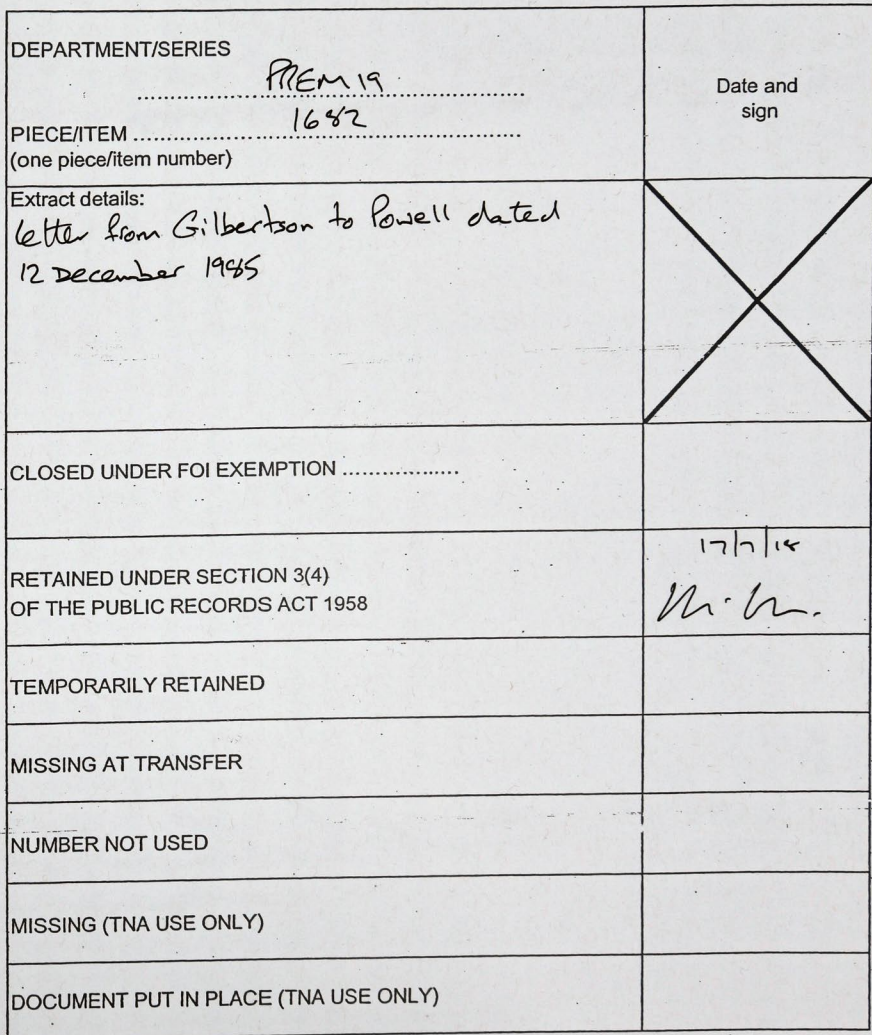 DEPARTMENT/SERIES
PREM 19
Date and
sign
PIECE/ITEM 1682
(one piece/item number)
Extract details:
Letter from Gilbertson to Powell dated
12 December 1985
CLOSED UNDER FOI EXEMPTION ..................
RETAINED UNDER SECTION 3(4)
OF THE PUBLIC RECORDS ACT 1958
17/7/18
TEMPORARILY RETAINED
MISSING AT TRANSFER
NUMBER NOT USED
MISSING (TNA USE ONLY)
DOCUMENT PUT IN PLACE (TNA USE ONLY)